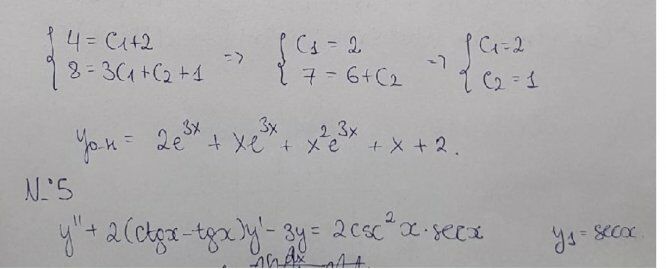 { 4 = C₁+2 => { C₁ = 2 => { C₁=2
{ 8 = 3C₁+C₂+1 { 7 = 6+C₂ { C₂ = 1
yо.н = 2e³ˣ + xe³ˣ + x²e³ˣ + x + 2.
N:5
y'' + 2(ctgx-tgx)y' - 3y = 2csc²x·secx y₁ = secx.